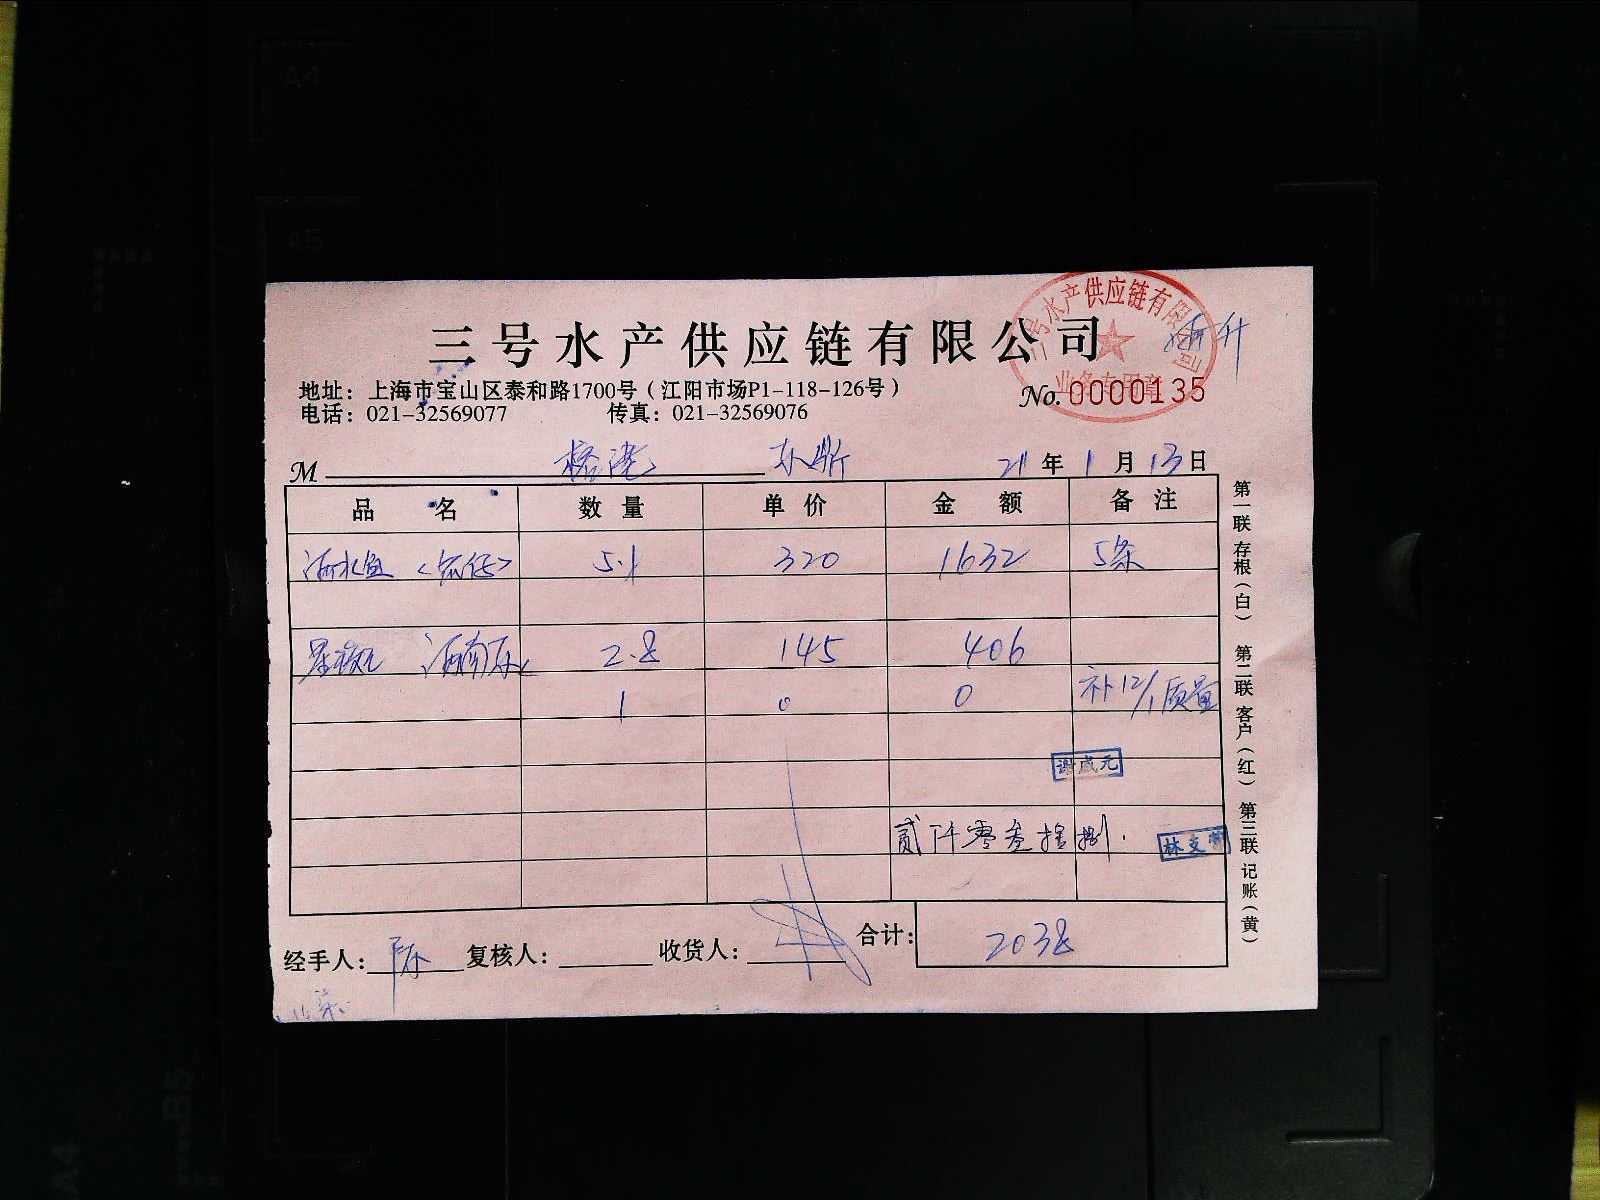 三号水产供应链有限公司
地址：上海市宝山区泰和路1700号（江阳市场P1-118-126号）
电话：021-32569077 传真：021-32569076
No.0000135
业务专用章
M 21年1月13日
品名 数量 单价 金额 备注
5.1 320 1632 5条
2.8 145 406
1 0 0 补12/1质量
谢成元
贰仟零叁拾捌.
经手人： 复核人： 收货人： 合计： 2038
第一联 存根（白） 第二联 客户（红） 第三联 记账（黄）
A4
A5
B5
A4